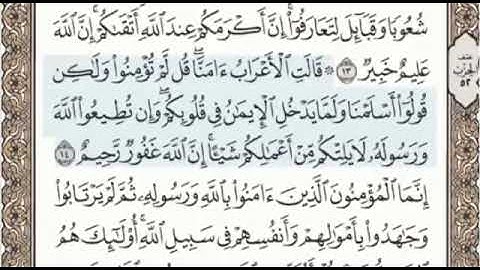 شُعُوبًا وَقَبَآئِلَ لِتَعَارَفُوٓا۟ ۚ إِنَّ أَكْرَمَكُمْ عِندَ ٱللَّهِ أَتْقَىٰكُمْ ۚ إِنَّ ٱللَّهَ
عَلِيمٌ خَبِيرٌ ١٣ ۞ قَالَتِ ٱلْأَعْرَابُ ءَامَنَّا ۖ قُل لَّمْ تُؤْمِنُوا۟ وَلَٰكِن
قُولُوٓا۟ أَسْلَمْنَا وَلَمَّا يَدْخُلِ ٱلْإِيمَٰنُ فِى قُلُوبِكُمْ ۖ وَإِن تُطِيعُوا۟ ٱللَّهَ
وَرَسُولَهُۥ لَا يَلِتْكُم مِّنْ أَعْمَٰلِكُمْ شَيْـًٔا ۚ إِنَّ ٱللَّهَ غَفُورٌ رَّحِيمٌ ١٤
إِنَّمَا ٱلْمُؤْمِنُونَ ٱلَّذِينَ ءَامَنُوا۟ بِٱللَّهِ وَرَسُولِهِۦ ثُمَّ لَمْ يَرْتَابُوا۟
وَجَٰهَدُوا۟ بِأَمْوَٰلِهِمْ وَأَنفُسِهِمْ فِى سَبِيلِ ٱللَّهِ ۚ أُو۟لَٰٓئِكَ هُمُ
نصف
الحزب
٥٢